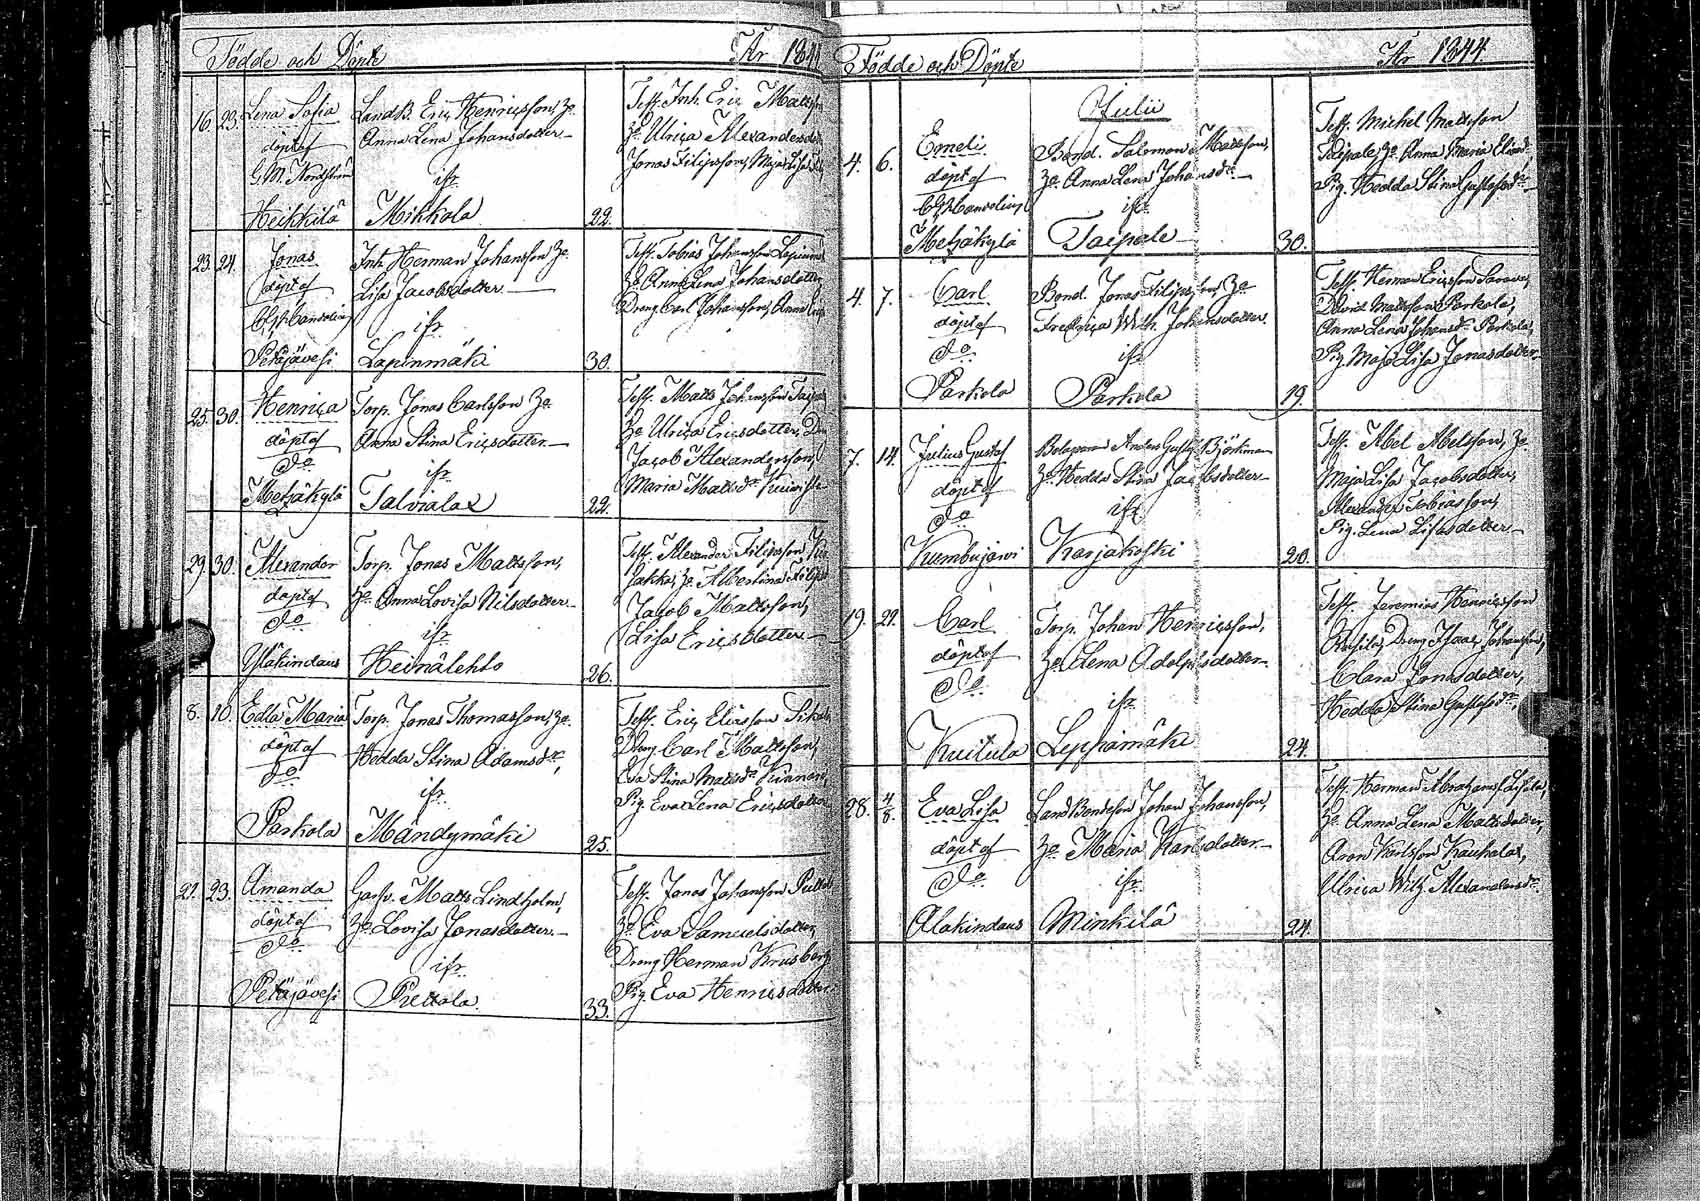 Födde och Döpte År 1844
16. 23. Lena Sofia
döpt af
G. M. Nordström
Heikkilä
Landb. Eric Henricsson, Ho
Anna Lena Johansdotter
ifr.
Mikkola
22.
Test. Inh. Eric Matsson
Ho Ulrica Alexandersdotter
Jonas Filipsson, Maja Lisa
23. 24. Jonas
döpt af
Petäjävesi
Inh. Herman Johansson Ho
Lisa Jacobsdotter
ifr.
Lapinmäki
30.
Test. Tobias Johansson Lapinmäki
Ho Anna Lena Johansdotter
Dreng Carl Johansson, Anna
25. 30. Henrica
döpt af
do
Metsäkylä
Torp. Jonas Carlsson Ho
Anna Stina Ericsdotter
ifr.
Talvialax
22.
Test. Matts Johansson
Ho Ulrica Ericsdotter,
Jacob Alexandersson,
Maria Mattsdr
29. 30. Alexander
döpt af
do
Yläkindaus
Torp. Jonas Mattsson,
Ho Anna Lovisa Nilsdotter
ifr.
Heinälehto
26.
Test. Alexander Filipsson
Ho Albertina
Jacob Mattsson,
Lisa Ericsdotter
8. 10. Edla Maria
döpt af
do
Parkola
Torp. Jonas Thomasson, Ho
Hedda Stina Adamsdr,
ifr.
Mändymäki
25.
Test. Eric Eliasson
Dreng Carl Mattsson,
Eva Stina Mattsdr Kinnan,
Pig. Eva Lena Ericsdotter
22. 23. Amanda
döpt af
do
Petäjävesi
Garfv. Matts Lindholm,
Ho Lovisa Jonasdotter
ifr.
Puttola
33.
Test. Jonas Johansson
Ho Eva Samuelsdotter,
Dreng Herman Krusberg
Pig. Eva Henricsdotter
Födde och Döpte År 1844.
Julii
4. 6. Emeli
döpt af
Metsäkylä
Bond. Salomon Mattsson,
Ho Anna Lena Johansdr
ifr.
Taipale
30.
Test. Michel Mattsson
Taipale, Ho Anna Maria
Pig. Hedda Stina Gustafsdr
4. 7. Carl
döpt af
do
Parkola
Bond. Jonas Filipsson, Ho
Fredrica Wilh. Johansdotter
ifr.
Parkola
19.
Test. Herman Ericsson
David Mattsson Parkola,
Anna Lena Johansdr Parkola,
Pig. Maja Lisa Jonasdotter
7. 14. Julius Gustaf
döpt af
do
Kumbujärvi
Anders Gustaf Björkman
Ho Hedda Stina Jacobsdotter
ifr.
Karjakoski
20.
Test. Abel Abelsson, Ho
Maja Lisa Jacobsdotter,
Alexander Tobiasson,
Pig. Lena Lisasdotter
19. 22. Carl
döpt af
do
Kuitula
Torp. Johan Henricsson,
Ho Lena Adolphsdotter
ifr.
Leppämäki
24.
Test. Jeremias Henricsson
Dreng Isaac Johansson,
Clara Jonasdotter,
Hedda Stina Gustafsdr,
28. 4/8. Eva Lisa
döpt af
do
Alakindaus
Landbondeson Johan Johansson,
Ho Maria Karlsdotter
ifr.
Minkilä
24.
Test. Herman Abrahamsson
Ho Anna Lena Mattsdotter,
Aron Karlsson Kauhalax,
Ulrica Wilh. Alexandersdr